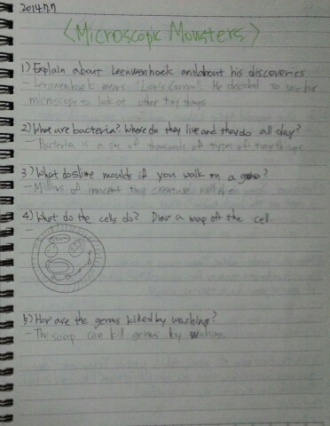 2014.7.7
<Microscopic Monsters>
1) Explain about Leeuwenhoek and about his discoveries
- Leeuwenhoek means "Lion's Corner". He decided to use his
microscope to look at other tiny things
2) What are bacteria? Where do they live and they do all day?
- Bacteria is a of thousands of types of tiny things
3) What do slime moulds if you walk on a ?
- Millions of innocent tiny creature will die
4) What do the cells do? Draw a map of the cell.
-
5) How are the germs killed by washing?
- The soap can kill germs by